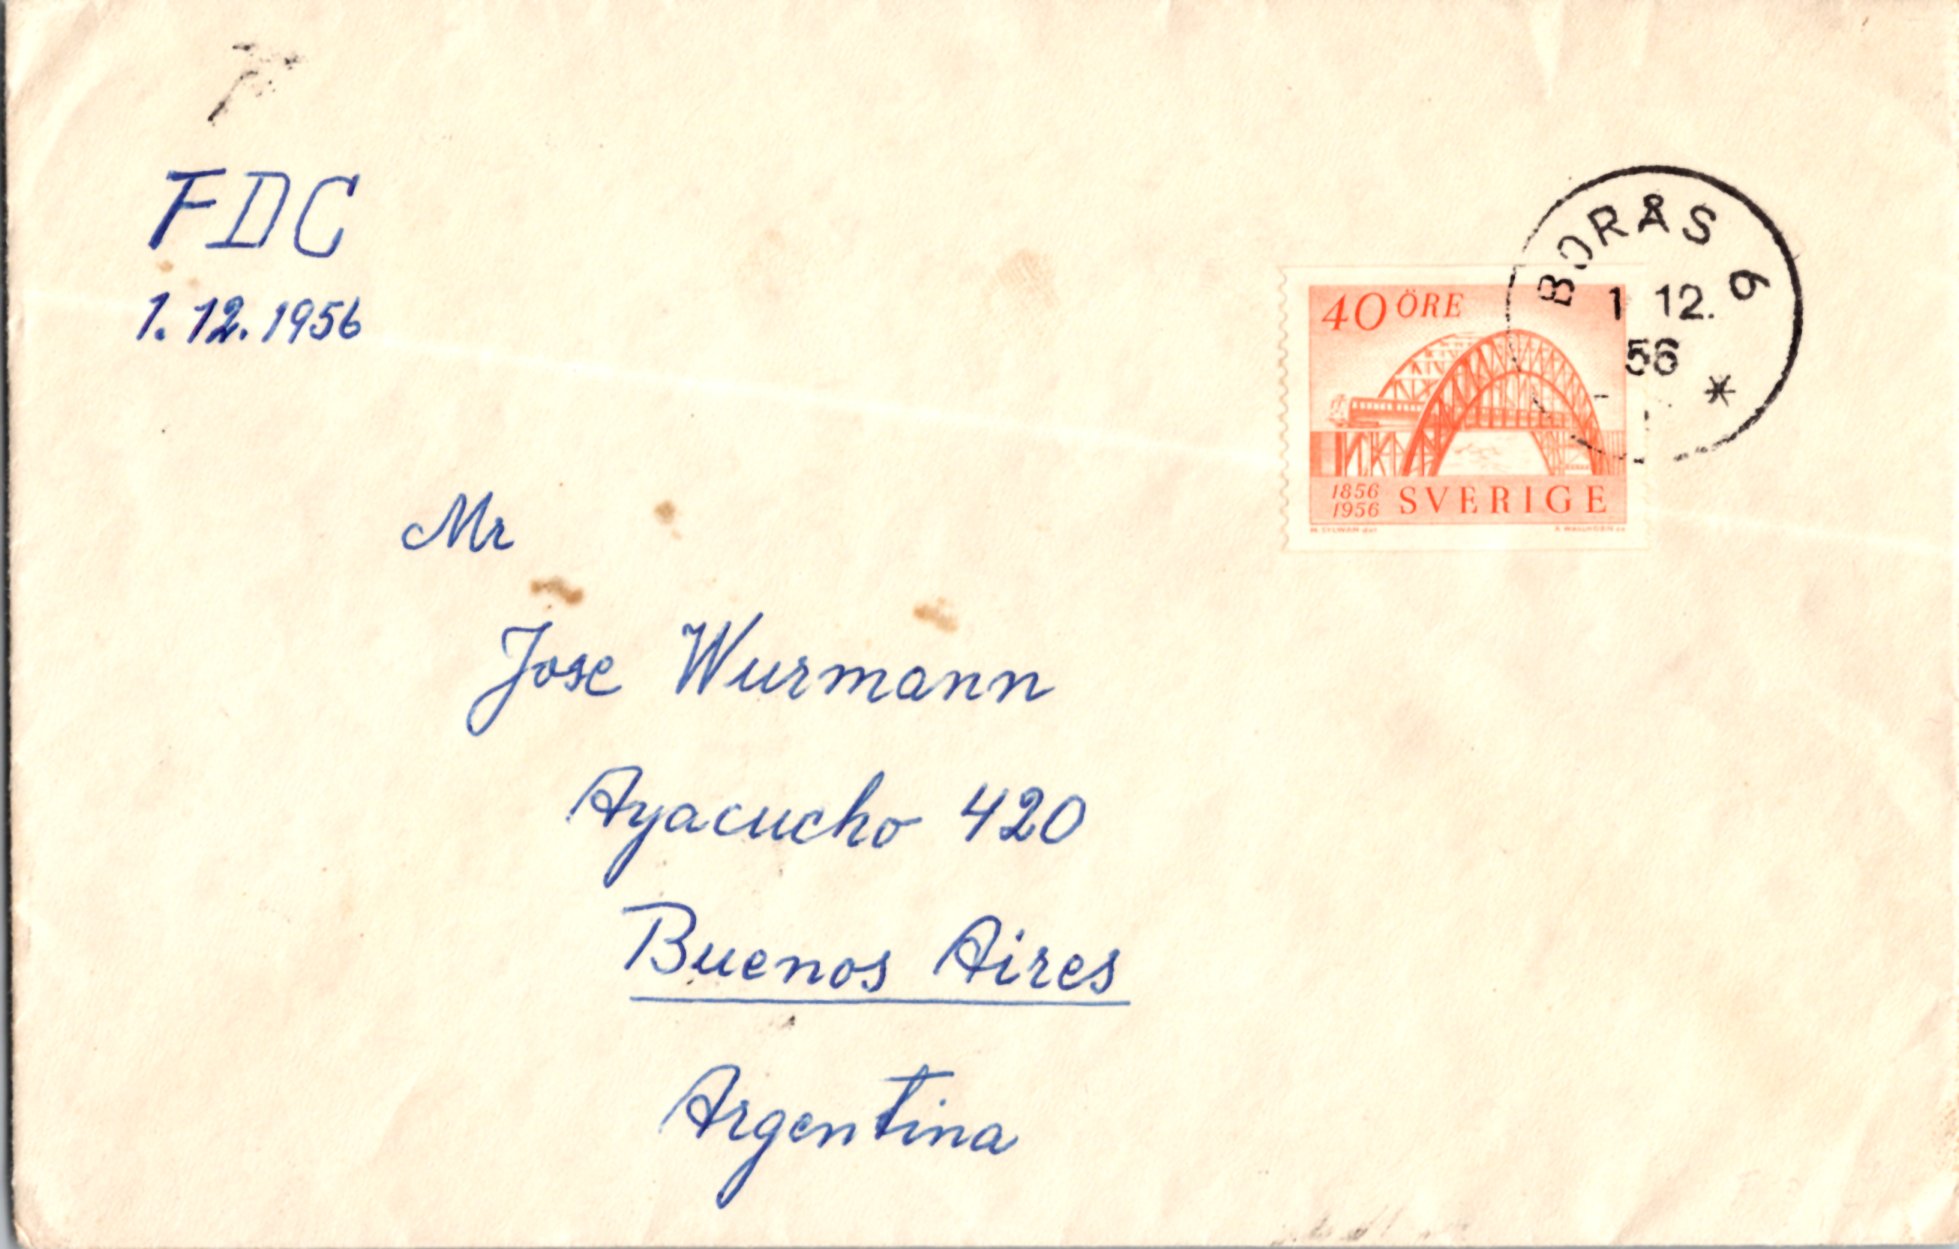 FDC
1. 12. 1956
BORÅS 6
1 12.
56
*
40 ÖRE
1856
1956
SVERIGE
Mr
Jose Wurmann
Ayacucho 420
Buenos Aires
Argentina